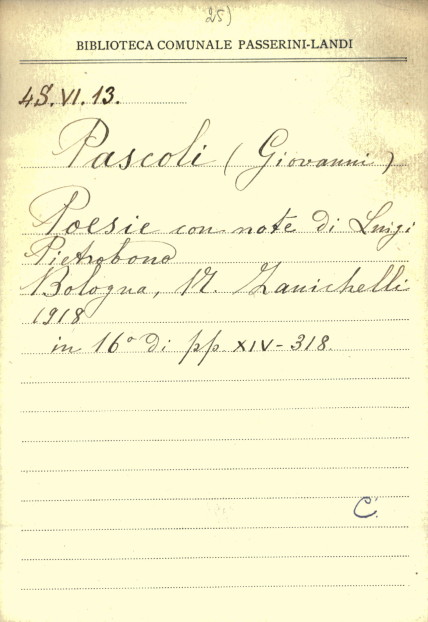 25)
BIBLIOTECA COMUNALE PASSERINI-LANDI
4S.VI.13.
Pascoli (Giovanni)
Poesie con note di Luigi
Pietrobono
Bologna, N. Zanichelli
1918
in 16° di pp XIV-318.
C.